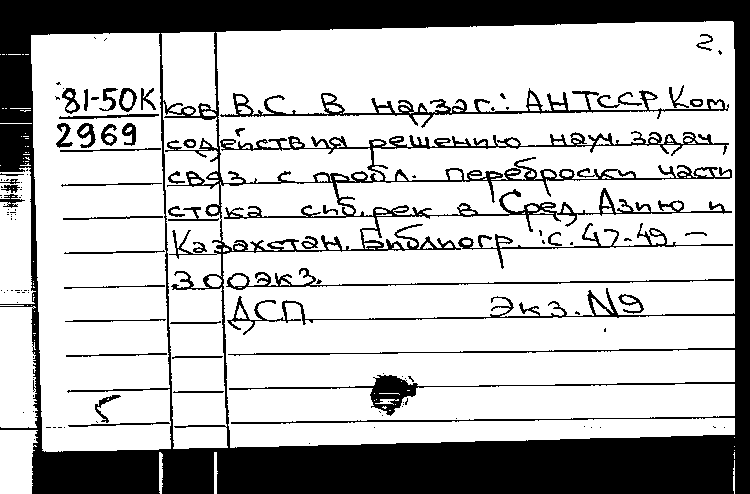 2.
81-50К ков В.С. В надзаг.: АН ТССР, Ком.
2969 содействия решению науч. задач,
связ. с пробл. переброски части
стока сиб. рек в Сред. Азию и
Казахстан. Библиогр.: с. 47-49. –
300 экз.
ДСП. Экз. №9
5